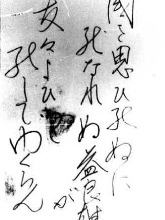 国を思ひ死ぬに
死なれぬ益良雄が
友々よびつ
死してゆくらん